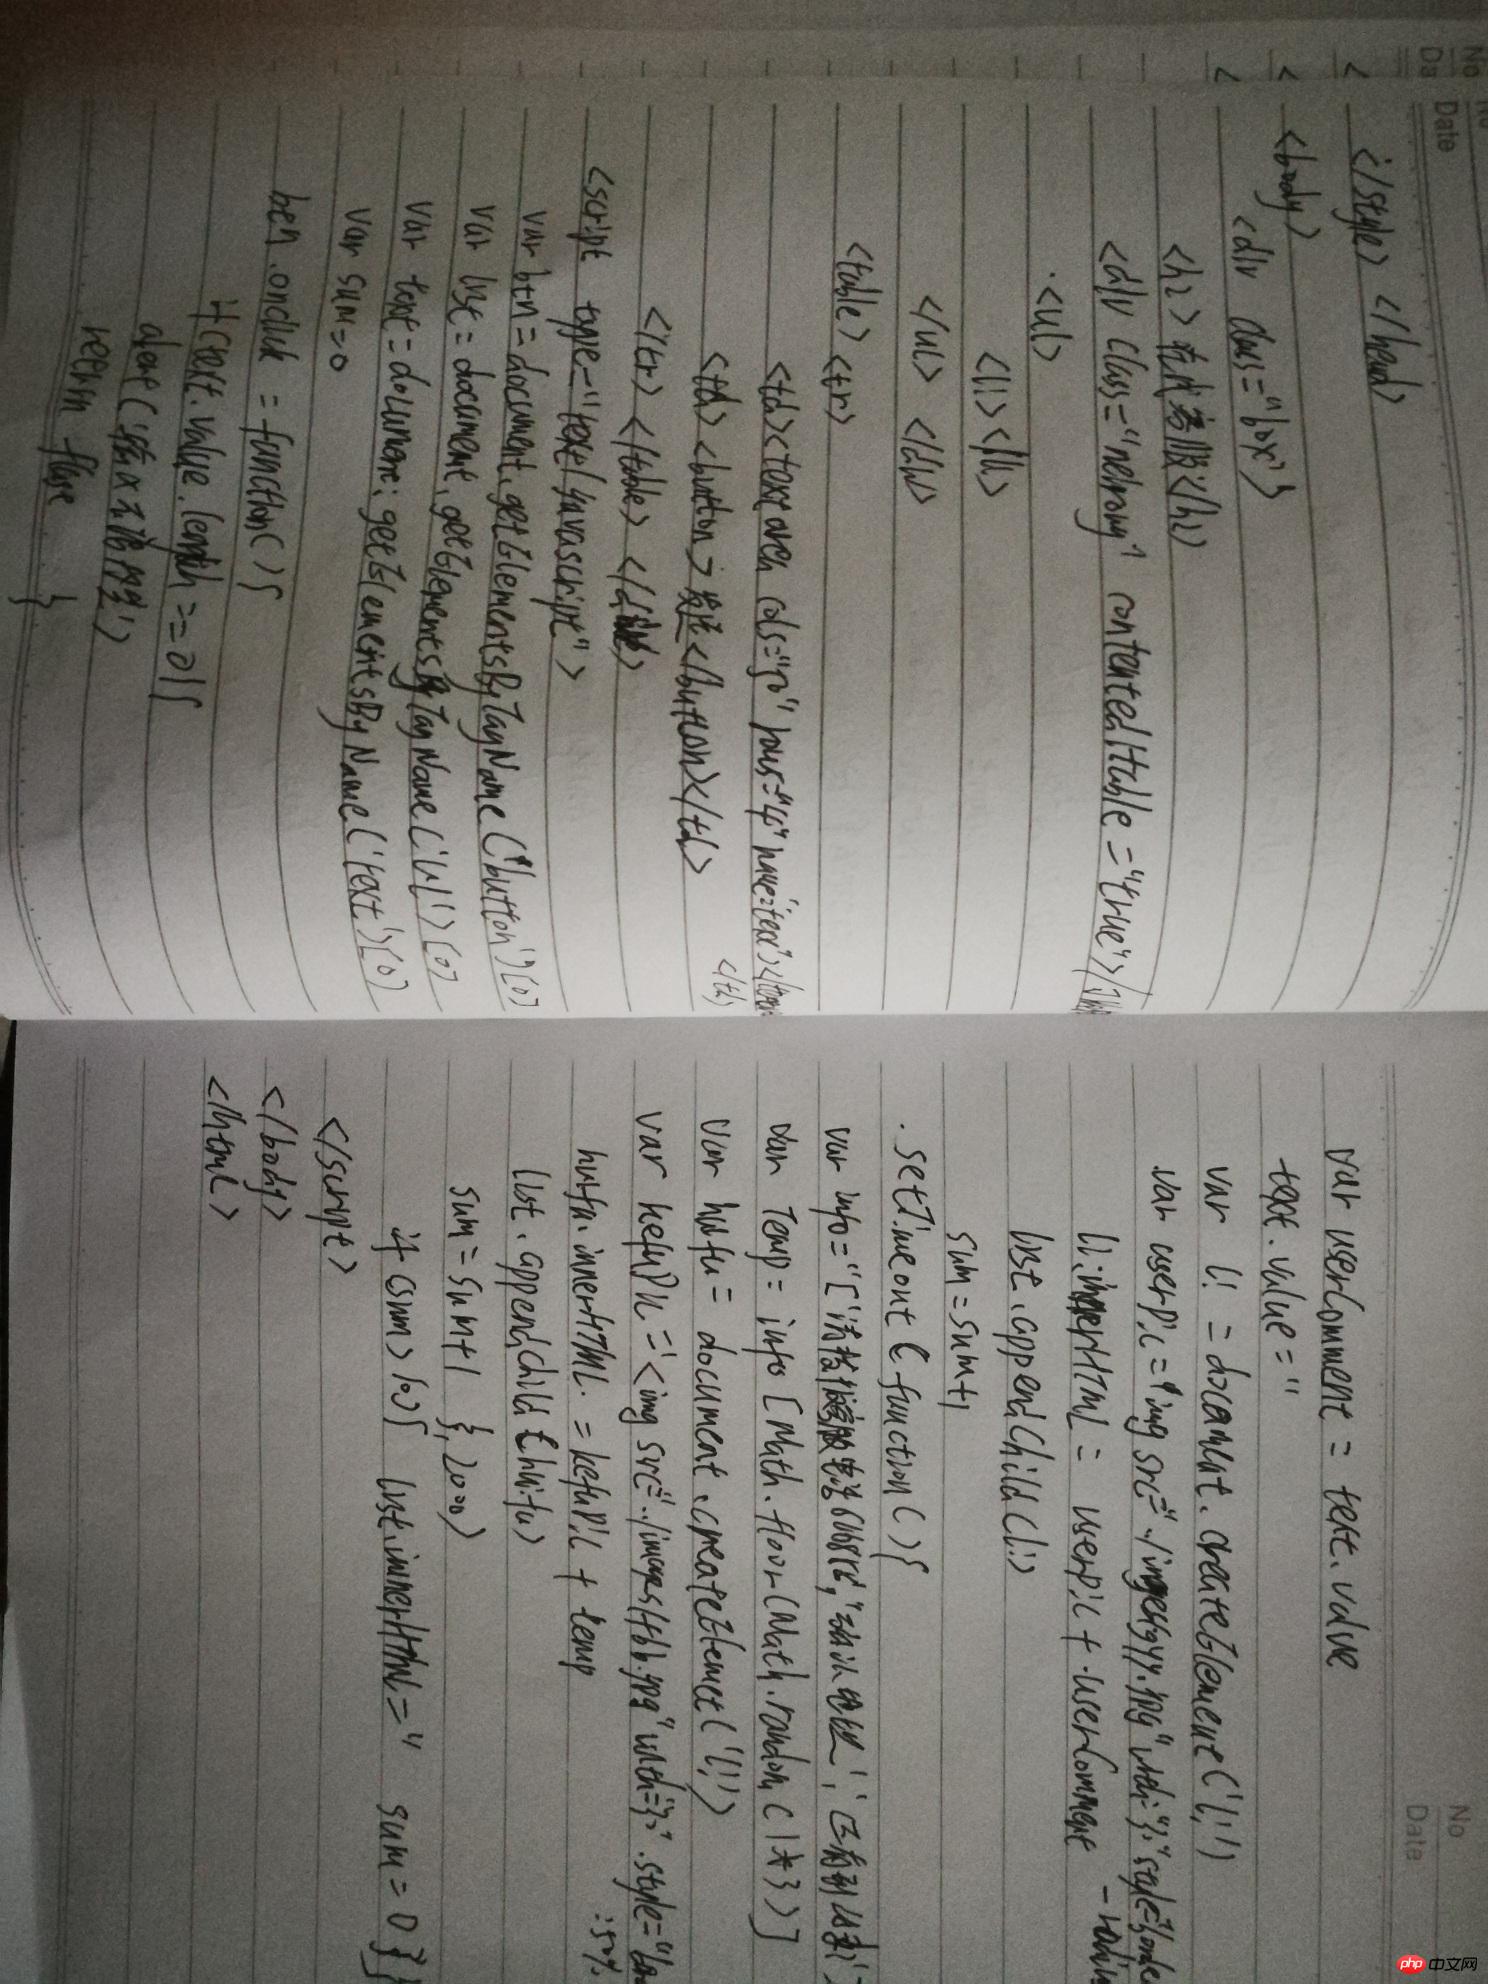 No
Da
No
Date
</style> </head>
<body>
<div class="box">
<h2>在线客服</h2>
<div class= contentedHtable="true">
<ul>
<li></li>
</ul> </div>
<table> <tr>
<td><textarea cols="50" rows="4" name="text">
</td>
<td><button>发送</button></td>
</tr> </table> </div>
<script type="text/javascript">
var btn = document.getElementsByTagName('button')[0]
var list = document.getElementsByTagName('ul')[0]
var text = document.getElementsByName('text')[0]
var sum=0
ben.onclick = function(){
if(text.value.length==0){
alert(
return flase }
No
Data
var userComment = text.value
text.value = ''
var li = document.createElement('li')
var userPic = 'img src="./
li.innerHTML = userPic + userComment
list.appendChild(li)
sum=sum+1
.setTimeout(function(){
var info=
var temp = info[Math.floor(Math.random()*3)]
var huifu = document.createElemet('li')
var kefuPic='<img src="./images/tbb.jpg" .style=
:50%
huifu.innerHTML. = kefuPic + temp
list.appendChild(huifu)
sum=sum+1 },2000)
if (sum>10){ list.innerHtml='' sum=0}}
</script>
</body>
</html>
php 中文网